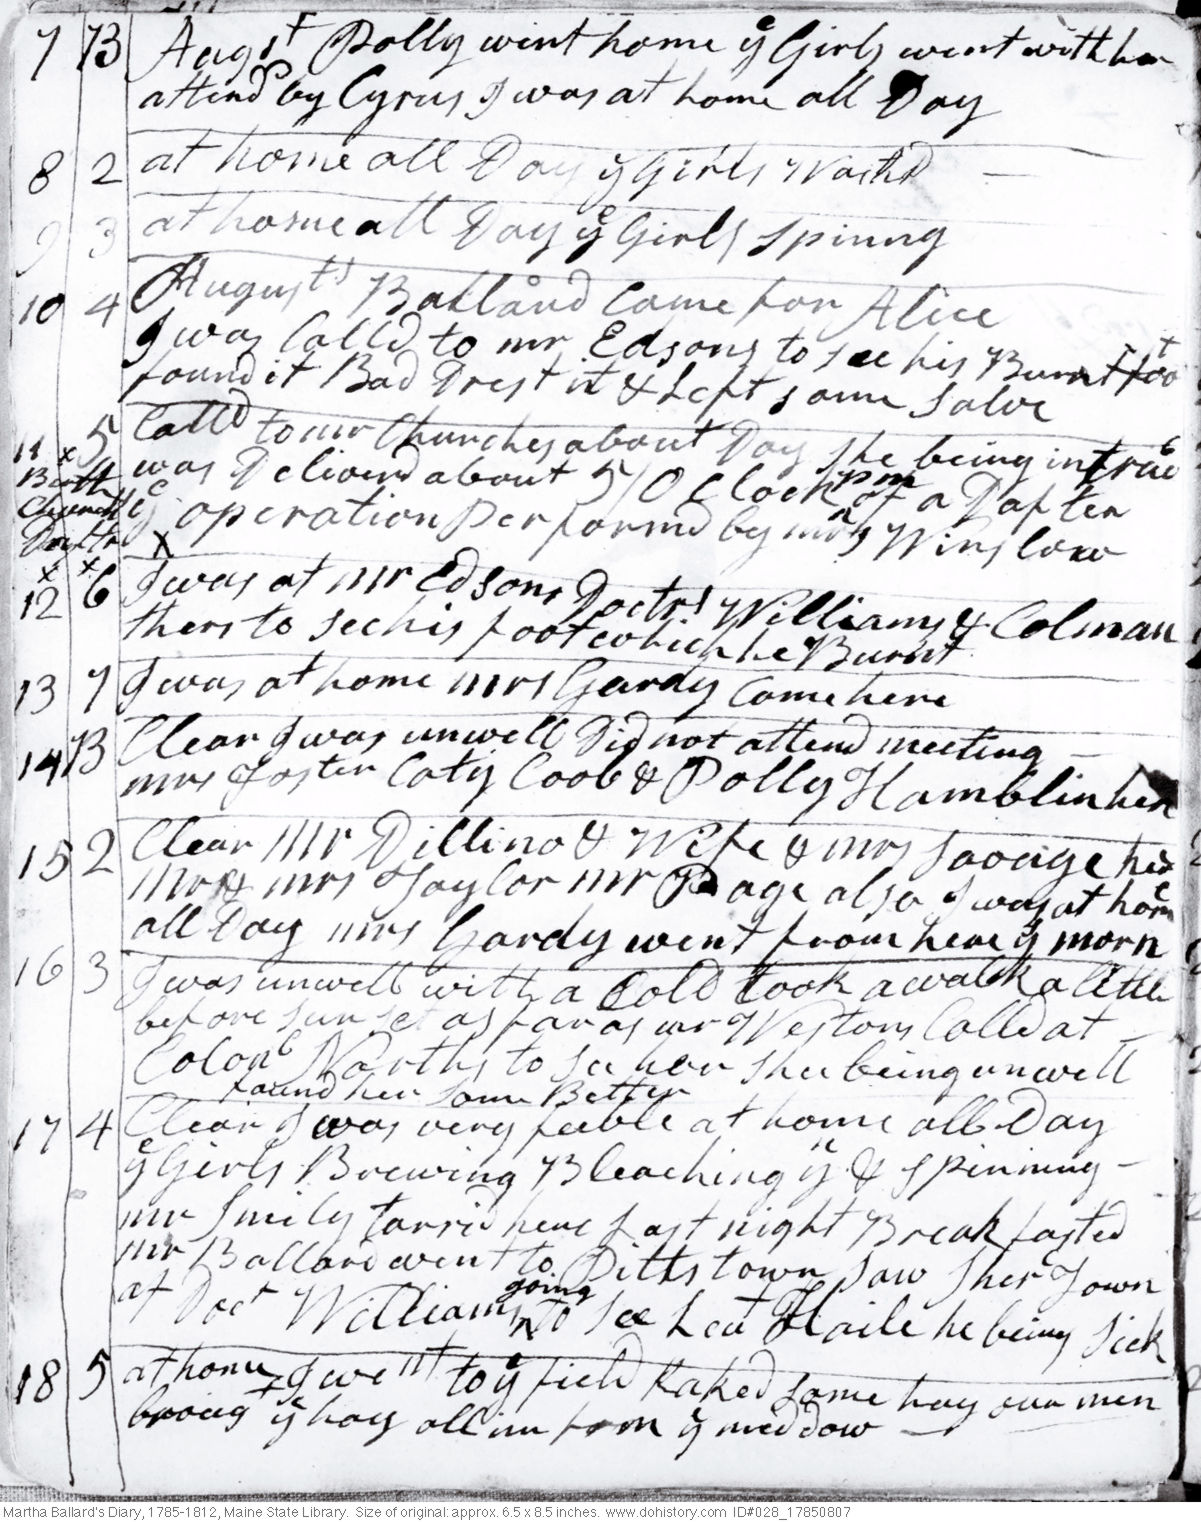 7 B Augst Polly went home ye Girls went with her
attend by Cyrus I was at home all Day
8 2 at home all Day ye Girls Washd —
9 3 at home all Day ye Girls Spining
10 4 Augusts Ballard Came for Alice
I was Calld to mr Edsons to see his Burnt foot
found it Bad Drest it & Left some Salve
11 x 5 Calld to mr Churches about Day she being in trub
Birth was Deliverd about 5/O Clock pm of a Dafter
Church Daftr ye operation performd by mrs Winslow
x x X
12 6 I was at mr Edsons Doctrs Williams & Colman
thers to see his foot which he Burnt
13 7 I was at home mrs Gardy Came here
14 B Clear I was unwell Did not attend meeting —
mrs Foster Caty Coob & Polly Hamblin here
15 2 Clear mr Dillino & Wife & mrs Savage here
mr & mrs Taylor mr Page also I was at home
all Day mrs Gardy went from here ye morn
16 3 I was unwell with a Cold took a walk a little
before sun set as far as mr Westons Calld at —
Colonl Norths to see her shee being unwell
found her some Better
17 4 Clear I was very feeble at home all Day
ye Girls Brewing Bleaching & Spinning —
mr Smily tarrid here Last night Break fasted
mr Ballard went to Pittstown saw Sher Town
at Doct Williams going to See Leut Haile he being Sick
18 5 at home I went to ye field Raked some hay our men
ye hay all in from ye meddow —
Martha Ballard's Diary, 1785-1812, Maine State Library. Size of original: approx. 6.5 x 8.5 inches. www.dohistory.com ID#028_17850807